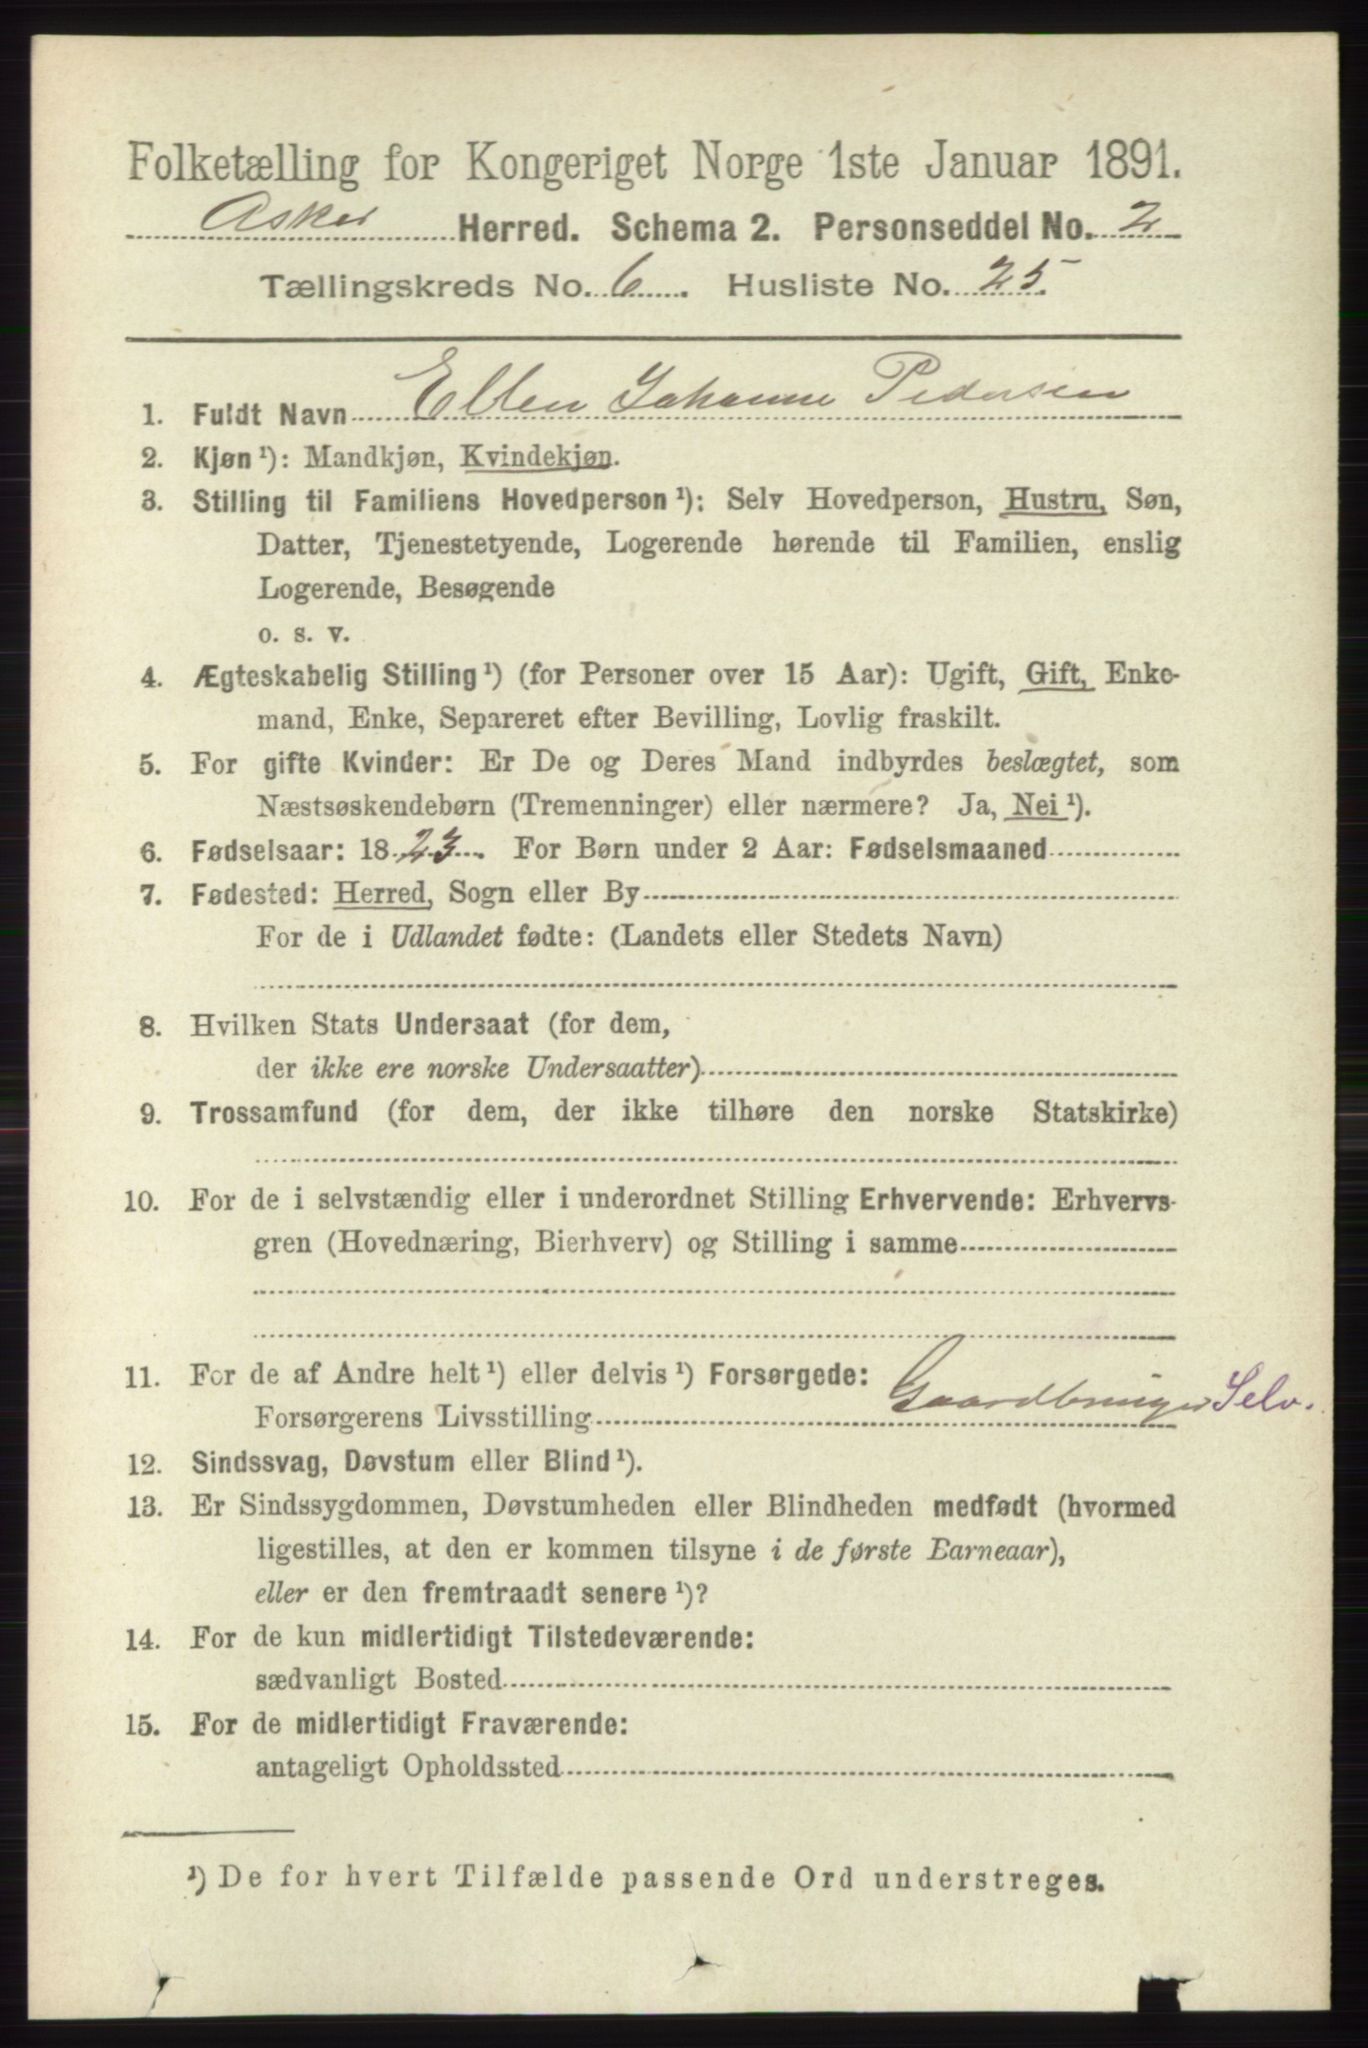 Folketælling for Kongeriget Norge 1ste Januar 1891.
Asker Herred. Schema 2. Personseddel No. 2
Tællingskreds No. 6. Husliste No. 25
1. Fuldt Navn Ellen Johanne Pedersen
2. Kjøn ¹): Mandkjøn, Kvindekjøn.
3. Stilling til Familiens Hovedperson ¹): Selv Hovedperson, Hustru, Søn,
Datter, Tjenestetyende, Logerende hørende til Familien, enslig
Logerende, Besøgende
o. s. v.
4. Ægteskabelig Stilling ¹) (for Personer over 15 Aar): Ugift, Gift, Enke-
mand, Enke, Separeret efter Bevilling, Lovlig fraskilt.
5. For gifte Kvinder: Er De og Deres Mand indbyrdes beslægtet, som
Næstsøskendebørn (Tremenninger) eller nærmere? Ja, Nei ¹).
6. Fødselsaar: 1823. For Børn under 2 Aar: Fødselsmaaned
7. Fødested: Herred, Sogn eller By
For de i Udlandet fødte: (Landets eller Stedets Navn)
8. Hvilken Stats Undersaat (for dem,
der ikke ere norske Undersaatter)
9. Trossamfund (for dem, der ikke tilhøre den norske Statskirke)
10. For de i selvstændig eller i underordnet Stilling Erhvervende: Erhvervs-
gren (Hovednæring, Bierhverv) og Stilling i samme
11. For de af Andre helt ¹) eller delvis ¹) Forsørgede:
Forsørgerens Livsstilling Gaardbruger Selv.
12. Sindssvag, Døvstum eller Blind ¹).
13. Er Sindssygdommen, Døvstumheden eller Blindheden medfødt (hvormed
ligestilles, at den er kommen tilsyne i de første Barneaar),
eller er den fremtraadt senere ¹)?
14. For de kun midlertidigt Tilstedeværende:
sædvanligt Bosted
15. For de midlertidigt Fraværende:
antageligt Opholdssted
¹) De for hvert Tilfælde passende Ord understreges.